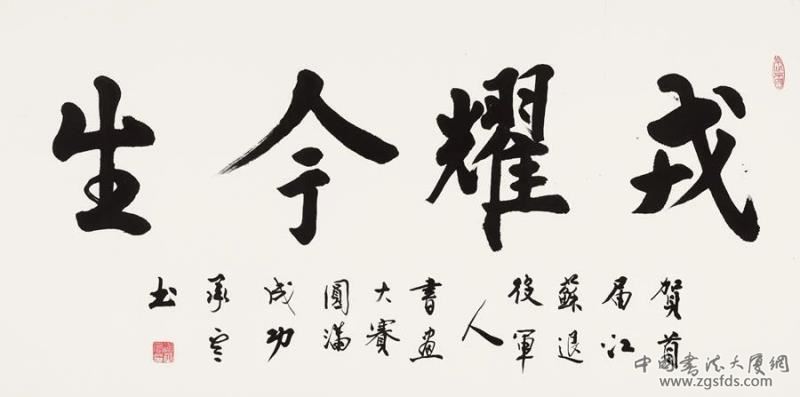 戎耀今生
賀首
届江
蘇退
役軍
人
書画
大賽
圓滿
成功
承
书
中國書法大厦網
www.zgsfds.com